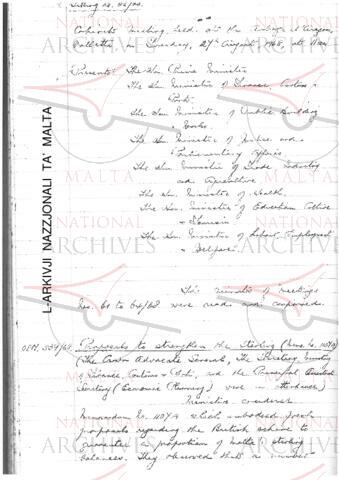 Cabinet meeting held at the Auberge d'Aragon,
Valletta on Tuesday, 27th August 1968, at
Presents: The Hon. Prime Minister
The Hon. Minister of Finance, Customs &
Port.
The Hon. Minister of Public Building
& Works.
The Hon. Minister of Justice and
Parliamentary Affairs
The Hon. Minister of Trade, Industry
and Agriculture
The Hon. Minister of Health.
The Hon. Minister of Education, Culture
& Tourism
The Hon. Minister of Labour, Employment
& Welfare.
The minutes of meetings
Nos. 61 to 64/68 were read and confirmed.
Proposals to strengthen the Sterling (Memo. No. 1107A)
(The Crown Advocate General, the Secretary, Ministry
of Finance, Customs & Port, and the Principal Assistant
Secretary (Economic Planning) were in attendance)
Ministers considered
Memorandum No. 1107A which embodied fresh
proposals regarding the British scheme to
guarantee a proportion of Malta's sterling
balances. They observed that a
L-ARKIVJI NAZZJONALI TA' MALTA
NATIONAL
MALTA
ARCHIVES